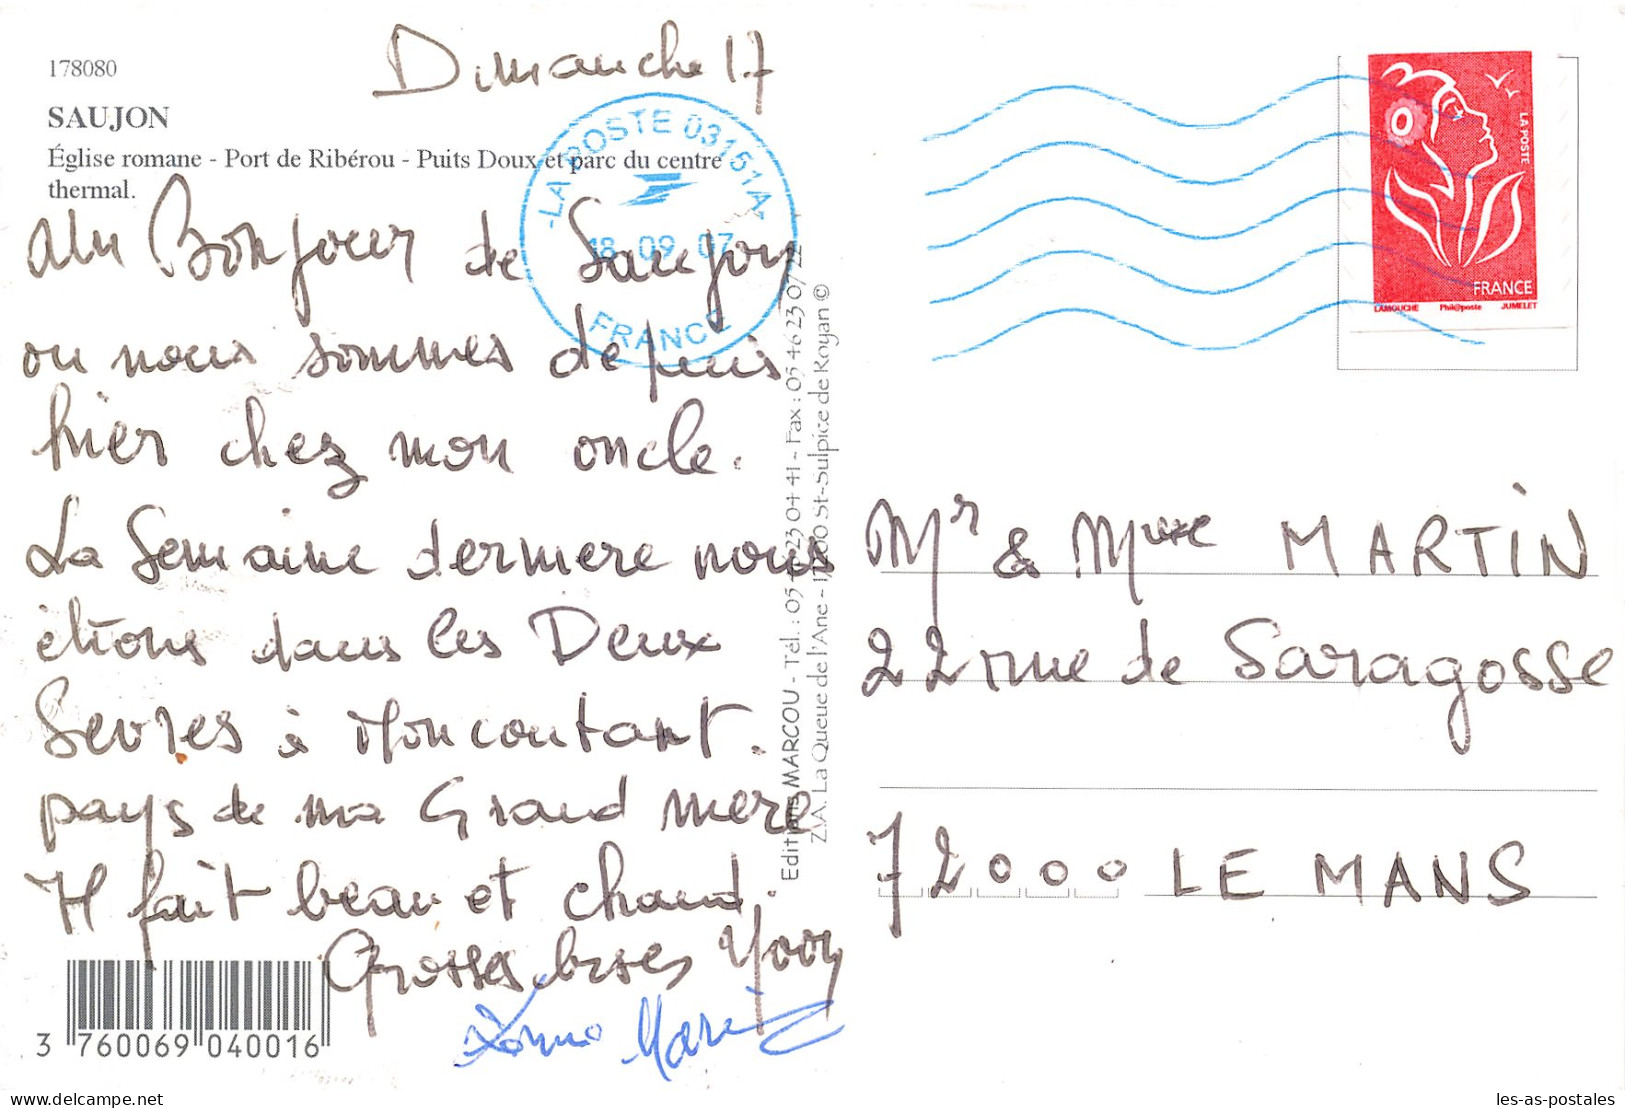 178080
SAUJON
Église romane - Port de Ribérou - Puits Doux et parc du centre
thermal.
Dimanche 17
Un Bonjour de Saujon
ou nous sommes depuis
hier chez mon oncle.
La Semaine derniere nous
étions dans les Deux
Sevres à Moncoutant.
pays de ma Grand mere
Il fait beau et chaud.
Grosses bises Yvon
Marie
3 760069 040016
LA POSTE 03151A
18 09 07
FRANCE
Editions MARCOU - Tél. : 05 46 23 04 41 - Fax : 05 46 23 07 22
Z.A. La Queue de l'Ane - 17200 St-Sulpice de Royan ©
LA POSTE
FRANCE
LAMOUCHE Phil@poste JUMELET
Mr & Mme MARTIN
22 rue de Saragosse
72000 LE MANS
les-as-postales
delcampe.net